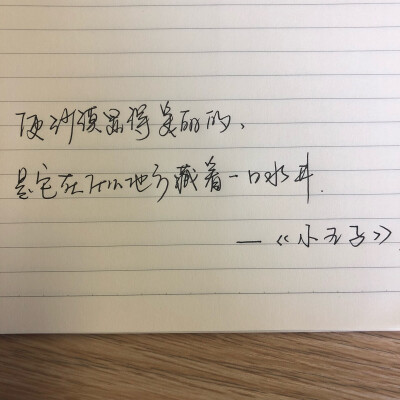 使沙漠显得美丽的、
是它在什么地方藏着一口水井.
—《小王子》